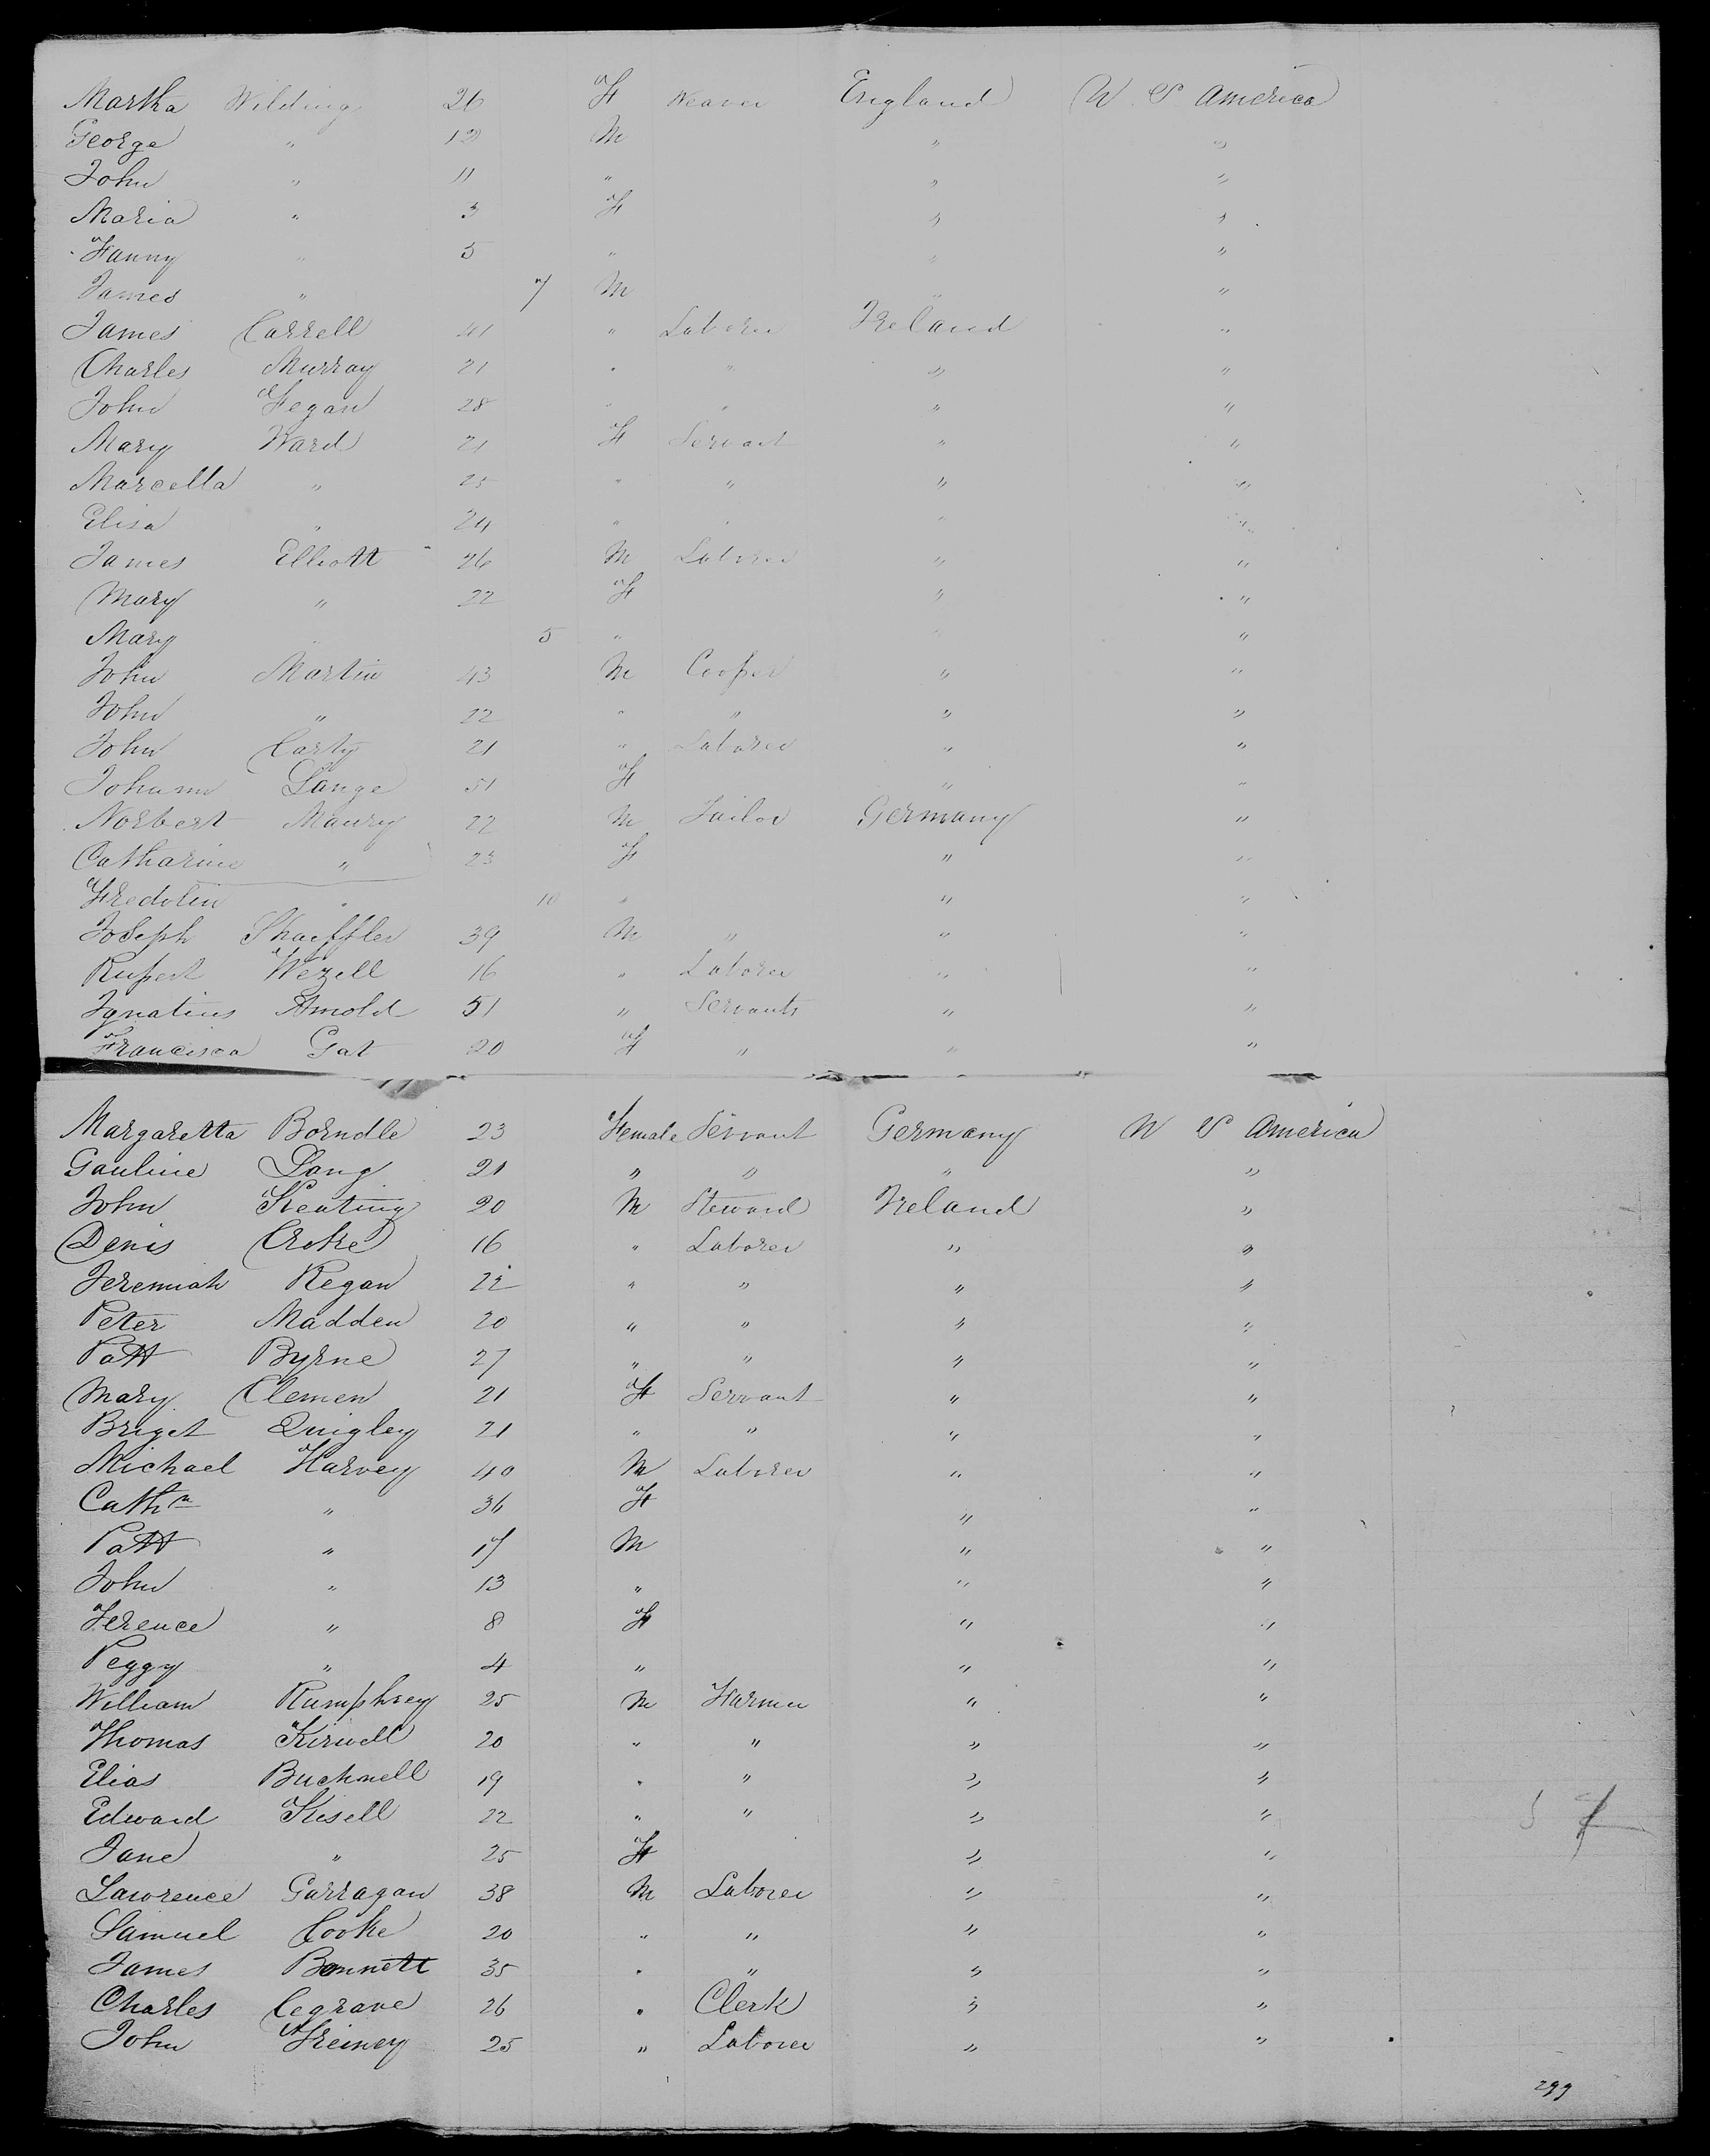 Martha Wilding 26 F Weaver England U S America
George " 12 M " "
John " 11 " " "
Maria " 3 F " "
Fanny " 5 " " "
James " 7 M " "
James Carrell 41 " Laborer Ireland "
Charles Murray 21 " " " "
John Fegan 28 " " " "
Mary Ward 21 F Servant " "
Marcella " 25 " " " "
Elisa " 24 " " " "
James Elliott 26 M Laborer " "
Mary " 22 F " "
Mary " 5 " " "
John Martin 43 M Cooper " "
John " 22 " " " "
John Carty 21 " Laborer " "
Johann Lange 51 F " "
Norbert Maury 22 M Tailor Germany "
Catharine " 23 F " "
Fredolin " 10 " " "
Joseph Shaeffler 39 M " " "
Rupert Wezell 16 " Laborer " "
Ignatius Arnold 51 " Servants " "
Francisca Gat 20 F " " "
Margaretta Borndle 23 Female Servant Germany U S America
Pauline Lang 21 " " " "
John Keating 20 M Steward Ireland "
Denis Croke 16 " Laborer " "
Jeremiah Regan 22 " " " "
Peter Madden 20 " " " "
Patt Byrne 27 " " " "
Mary Clemen 21 F Servant " "
Briget Quigley 21 " " " "
Michael Harvey 40 M Laborer " "
Cathn " 36 F " "
Patt " 17 M " "
John " 13 " " "
Terence " 8 F " "
Peggy " 4 " " "
William Rumphrey 25 M Farmer " "
Thomas Kirwell 20 " " " "
Elias Bucknell 19 " " " "
Edward Kisell 22 " " " "
Jane " 25 F " "
Lawrence Garragan 38 M Laborer " "
Samuel Cooke 20 " " " "
James Bennett 35 " " " "
Charles Cegrave 26 " Clerk " "
John Freiney 25 " Laborer " "
299